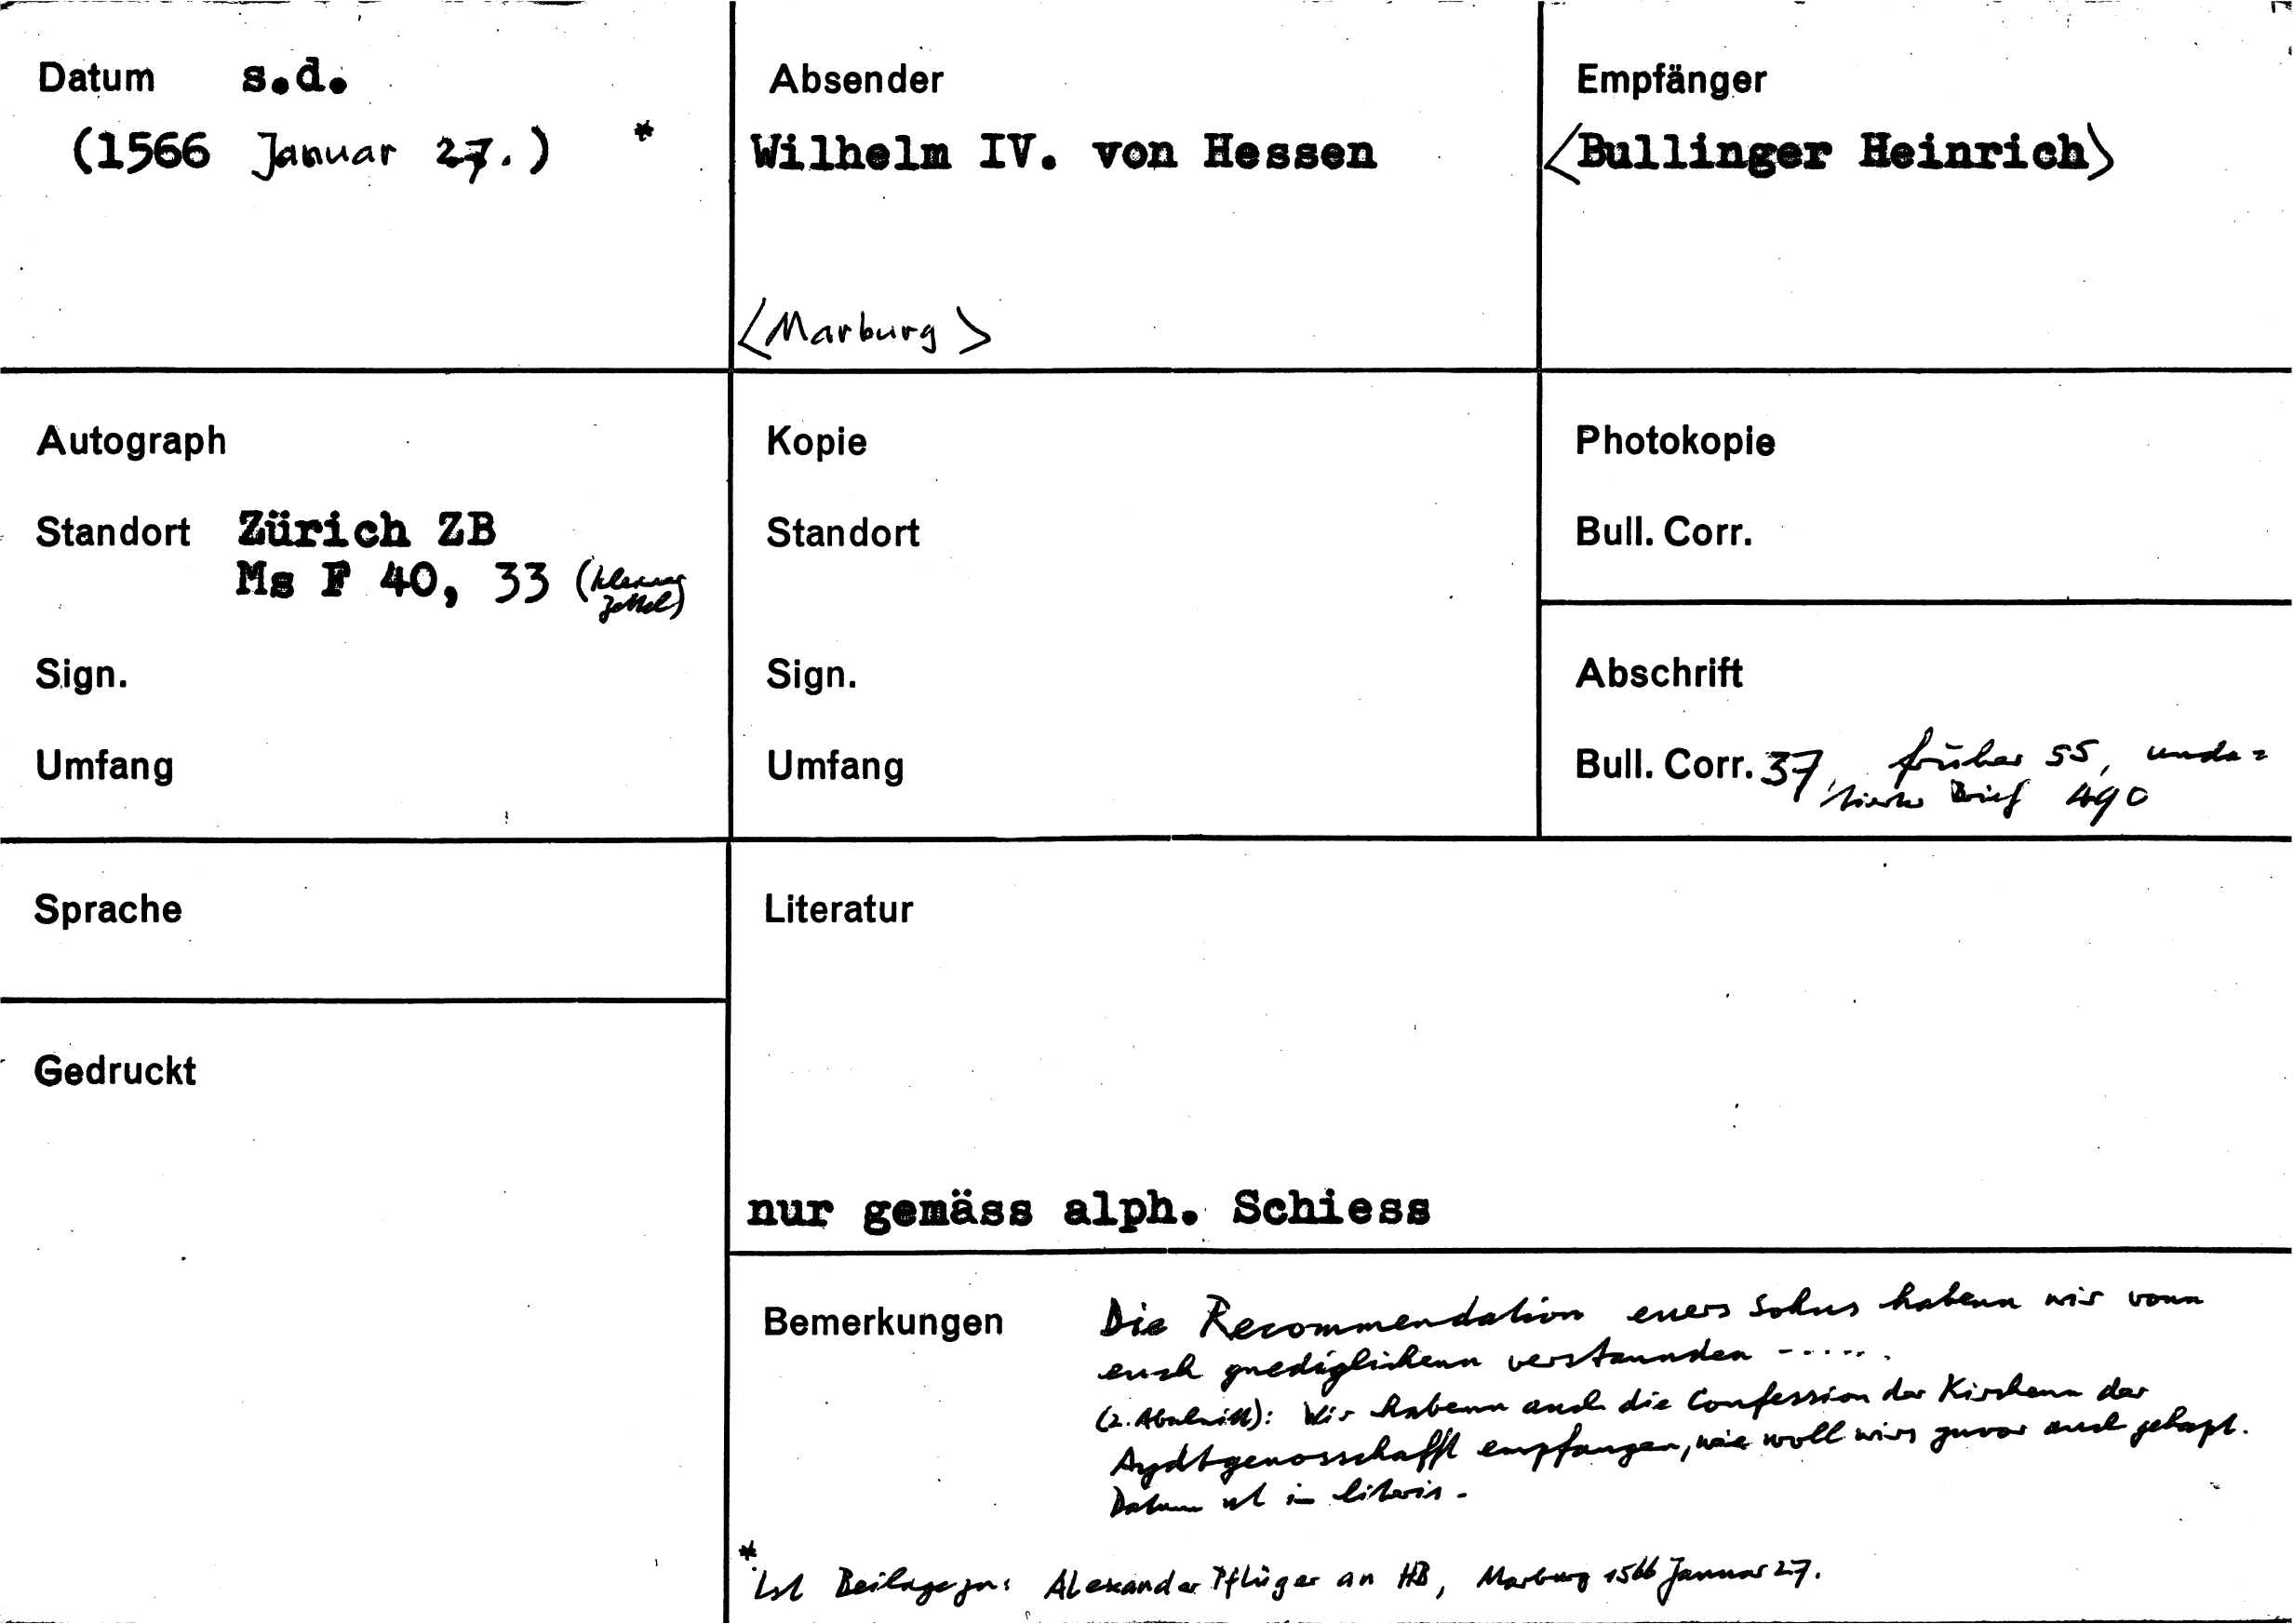 Datum s.d.
(1566 Januar 27.) *
Absender
Wilhelm IV. von Hessen
<Marburg>
Empfänger
<Bullinger Heinrich>
Autograph
Standort Zürich ZB
Ms F 40, 33 (kleiner
Zettel)
Sign.
Umfang
Kopie
Standort
Sign.
Umfang
Photokopie
Bull. Corr.
Abschrift
Bull. Corr. 37, früher 55, unda=
tierte Brief 490
Sprache
Gedruckt
Literatur
nur gemäss alph. Schiess
Bemerkungen
Die Recommendation euers Sohns habenn wir vonn
euch gnediglichenn verstannden ......
(2. Abschnitt): Wir habenn auch die Confession der Kirchenn der
Aydtgenosschafft empfangen, wie woll wirs zuvor auch gehapt.
Datum ut in literis.
* Ist Beilage zu: Alexander Pflüger an HB, Marburg 1566 Januar 27.